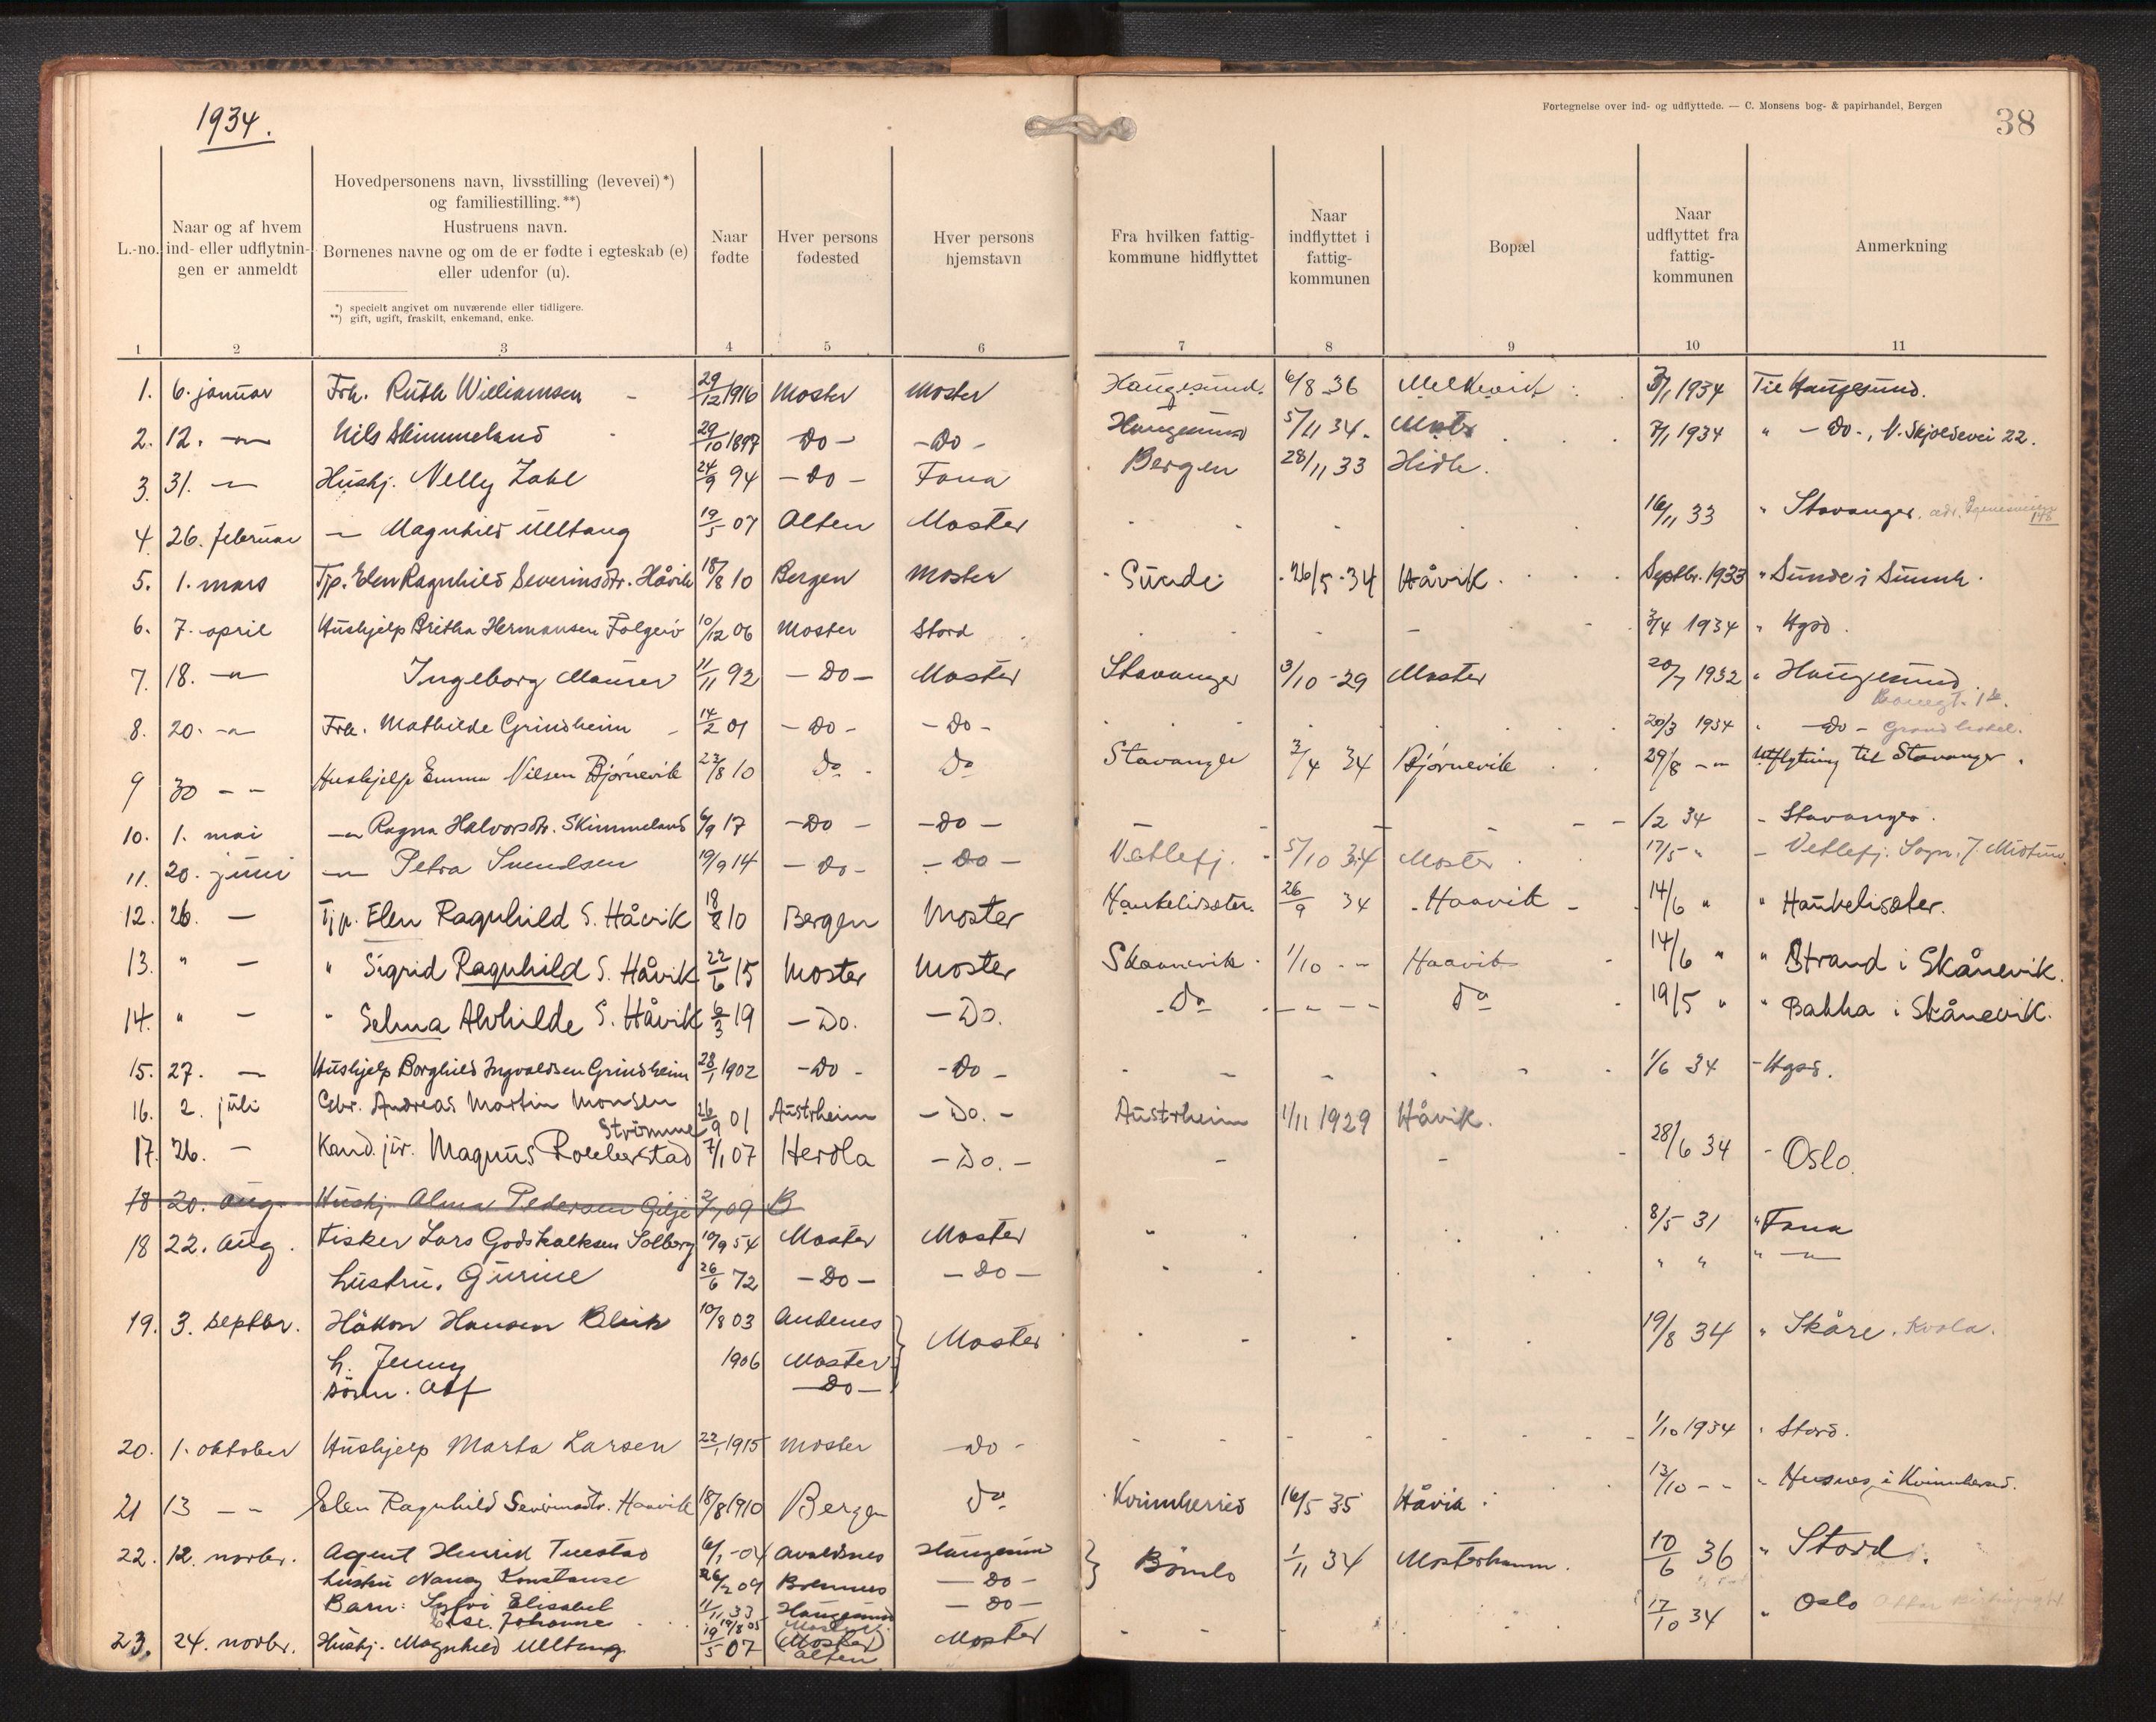 1934.
Fortegnelse over ind- og udflyttede. — C. Monsens bog- & papirhandel, Bergen
38
L.-no.
Naar og af hvem
ind- eller udflytnin-
gen er anmeldt
Hovedpersonens navn, livsstilling (levevei)*)
og familiestilling.**)
Hustruens navn.
Børnenes navne og om de er fødte i egteskab (e)
eller udenfor (u).
*) specielt angivet om nuværende eller tidligere.
**) gift, ugift, fraskilt, enkemand, enke.
Naar
fødte
Hver persons
fødested
Hver persons
hjemstavn
Fra hvilken fattig-
kommune hidflyttet
Naar
indflyttet i
fattig-
kommunen
Bopæl
Naar
udflyttet fra
fattig-
kommunen
Anmerkning
1 2 3 4 5 6 7 8 9 10 11
1. 6. januar Frk. Ruth Williamsen 29/12 1916 Moster Moster Haugesund. 6/8 36 Melkevik 1934 Til Haugesund.
2. 12. -"- Nils Skimmeland 29/10 1897 - Do - - Do - Haugesund 5/11 34. 7/1 1934 " - Do -, N. Skjoldsvei 22.
3. 31. -"- Hushj. Nelly Zahl 24/9 94 - Do - Fana Bergen 28/11 33
4. 26. februar -"- Magnhild Ulltang 19/5 07 Alten Moster 16/11 33 " Stavanger. adr. 148
5. 1. mars Tjp. Elen Ragnhild Severinsdtr. Håvik 18/8 10 Bergen Moster Sunde 26/5 34 Håvik Septbr. 1933 " Sunde i Sunnh.
6. 7. april Hushjelp Britha Hermansen Folgerö 10/12 06 Moster Stord 3/4 1934 " Hgsd.
7. 18. -"- Ingeborg Maurer 11/11 92 - Do - Moster Stavanger 3/10 29 Moster 20/7 1932 " Haugesund.
8. 20. -"- Frk. Mathilde Grindheim 14/2 01 - Do - - Do - 20/3 1934 " - Do - Grand hotel.
9 30 - - Hushjelp Emma Nilsen Bjørnevik 23/8 10 Do Do Stavanger 3/4 34 Bjørnevik 29/8 - - Utflytning til Stavanger.
10. 1. mai -"- Ragna Halvorsdtr. Skimmeland 6/9 17 - Do - - Do - 1/2 34 - Stavanger.
11. 20. juni -"- Petra Svendsen 19/9 14 - Do - - Do - Vetlefj. 5/10 34 Moster 17/5 " - Vetlefj. Sogn. J. Midtun.
12. 26. - Tjp. Elen Ragnhild S. Håvik 18/8 10 Bergen Moster Haukelisæter. 26/9 34 Haavik 14/6 " " Haukelisæter.
13. " - " Sigrid Ragnhild S. Håvik 22/6 15 Moster Moster Skaanevik 1/10 - - Haavik 14/6 " " Strand i Skånevik.
14. " - " Selma Alvhilde S. Håvik 6/3 19 - Do. - Do. Do - - - - Do 19/5 " " Bakka i Skånevik.
15. 27. - Hushjelp Borghild Ingvaldsen Grindheim 28/1 1902 - Do - - Do - 1/6 34 - Hgsd.
16. 2. juli Gbr. Andreas Martin Monsen
Strømme 26/9 01 Austrheim - Do. - Austrheim 1/11 1929 Håvik.
17. 26. - Kand. jur. Magnus 7/1 07 Herdla - Do. - 28/6 34 - Oslo.
18 20. aug. Hushj. Alma Pedersen Gilje 2/1 09 B
18 22. aug. Fisker Lars Godskalksen Solberg 10/9 54 Moster Moster 8/5 31 " Fana
hustru. Gurine 26/6 72 - Do - - Do - " " " -"-
19. 3. septbr. Håkon Hansen 10/8 03 Andenes Moster 19/8 34 " Skåre. Kvala.
h. Jenny 1906 Moster
sönn. Alf - Do -
20. 1. oktober Hushjelp Marta Larsen 22/1 1915 Moster - Do - 1/10 1934 " Stord.
21 13 - - Elen Ragnhild Severinsdtr. Haavik 18/8 1910 Bergen Do Kvinnherred 16/5 35 Håvik 13/10 - - " Husnes i Kvinnherad.
22. 12. novbr. Agent Henrik 6/1 04 Avaldsnes Haugesund Bömlo 1/11 34 Mosterhamn. 10/6 36 " Stord.
hustru Nancy Konstanse 26/2 09 Bremnes - Do -
Barn: Sylvi Elisabet 11/11 33 Haugesund - Do -
Johanne 19/8 05
23. 24. novbr. Hushj. Magnhild Ulltang 19/5 07 (Moster) Alten Moster 17/10 34 " Oslo